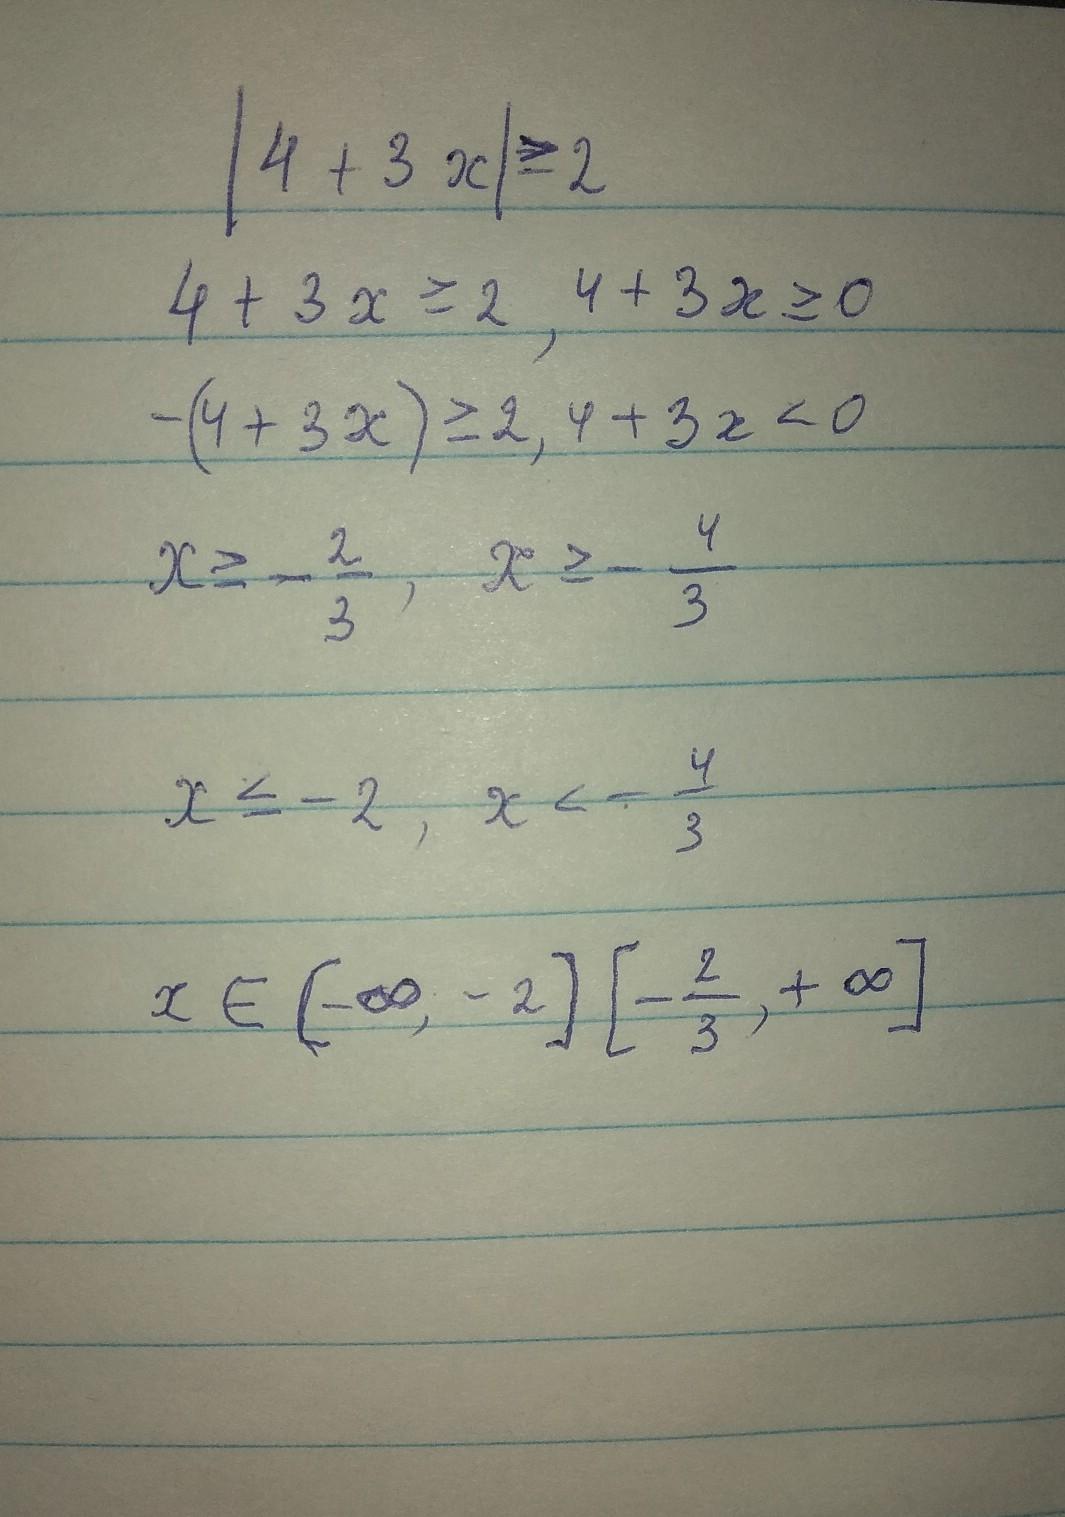 |4 + 3x| ≥ 2
4 + 3x ≥ 2, 4 + 3x ≥ 0
-(4 + 3x) ≥ 2, 4 + 3x < 0
x ≥ - 2/3, x ≥ - 4/3
x ≤ -2, x < - 4/3
x ∈ [-∞, -2] [- 2/3, + ∞]